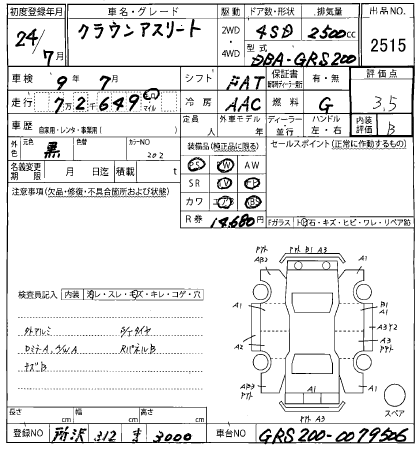 初度登録年月 車名・グレード 駆動 ドア数・形状 排気量 出品NO.
24/7月 クラウンアスリート 2WD・4WD 4SD 2500cc 2515
型式 DBA-GRS200
車検 9年 7月 シフト FAT 保証書 有・無 評価点
走行 7万2千649 km マイル 冷房 AAC 燃料 G 3.5
車歴 自家用・レンタ・事業用( ) 定員 人 外車モデル 年 ディーラー 並行 ハンドル 左・右 内装評価 B
外色 元色 黒 色替 カラーNO 202 装備品(純正品に限る) セールスポイント(正常に作動するもの)
名義変更期限 月 日迄 積載 t PS PW AW
注意事項(欠品・修復・不具合箇所および状態) SR
カワ エアB ABS
R券 14,680円 Fガラス ト石・キズ・ヒビ・ワレ・リペア跡
アト B1 A3
A1
A1 B1
A1
A3 Y2
A2
A1
A1
A1
アト A3
スペア
検査員記入 内装 ヨレ・スレ・キズ・キレ・コゲ・穴
外アルミ
RパネルB
キズB
長さ cm 幅 cm 高さ cm
登録NO 所沢 312 す 3000 車台NO GRS200-0079506